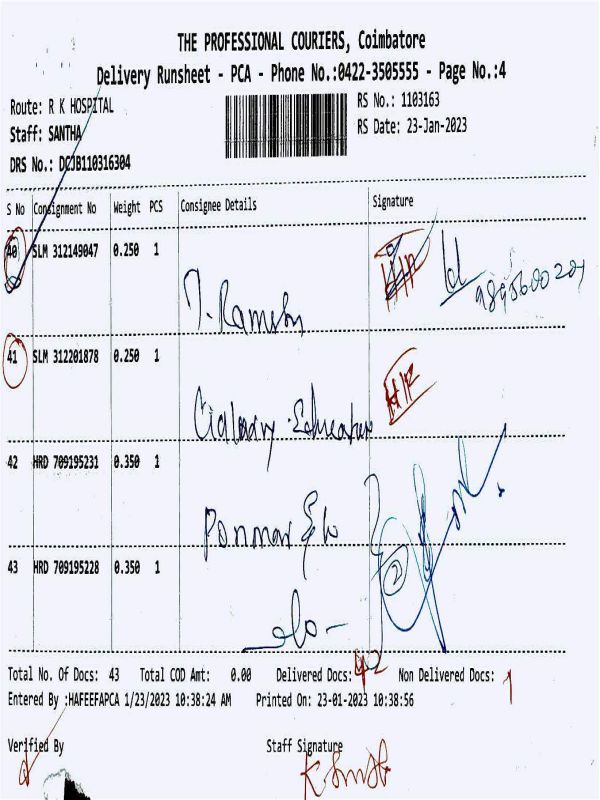 THE PROFESSIONAL COURIERS, Coimbatore
Delivery Runsheet - PCA - Phone No.:0422-3505555 - Page No.:4
Route: R K HOSPITAL
Staff: SANTHA
DRS No.: DCJB110316304
RS No.: 1103163
RS Date: 23-Jan-2023
S No Consignment No Weight PCS Consignee Details Signature
40 SLM 312149047 0.250 1
T. Ramesh
41 SLM 312201878 0.250 1
42 HRD 709195231 0.350 1
43 HRD 709195228 0.350 1
2
Total No. Of Docs: 43 Total COD Amt: 0.00 Delivered Docs: 42 Non Delivered Docs: 1
Entered By :HAFEEFAPCA 1/23/2023 10:38:24 AM Printed On: 23-01-2023 10:38:56
Verified By Staff Signature